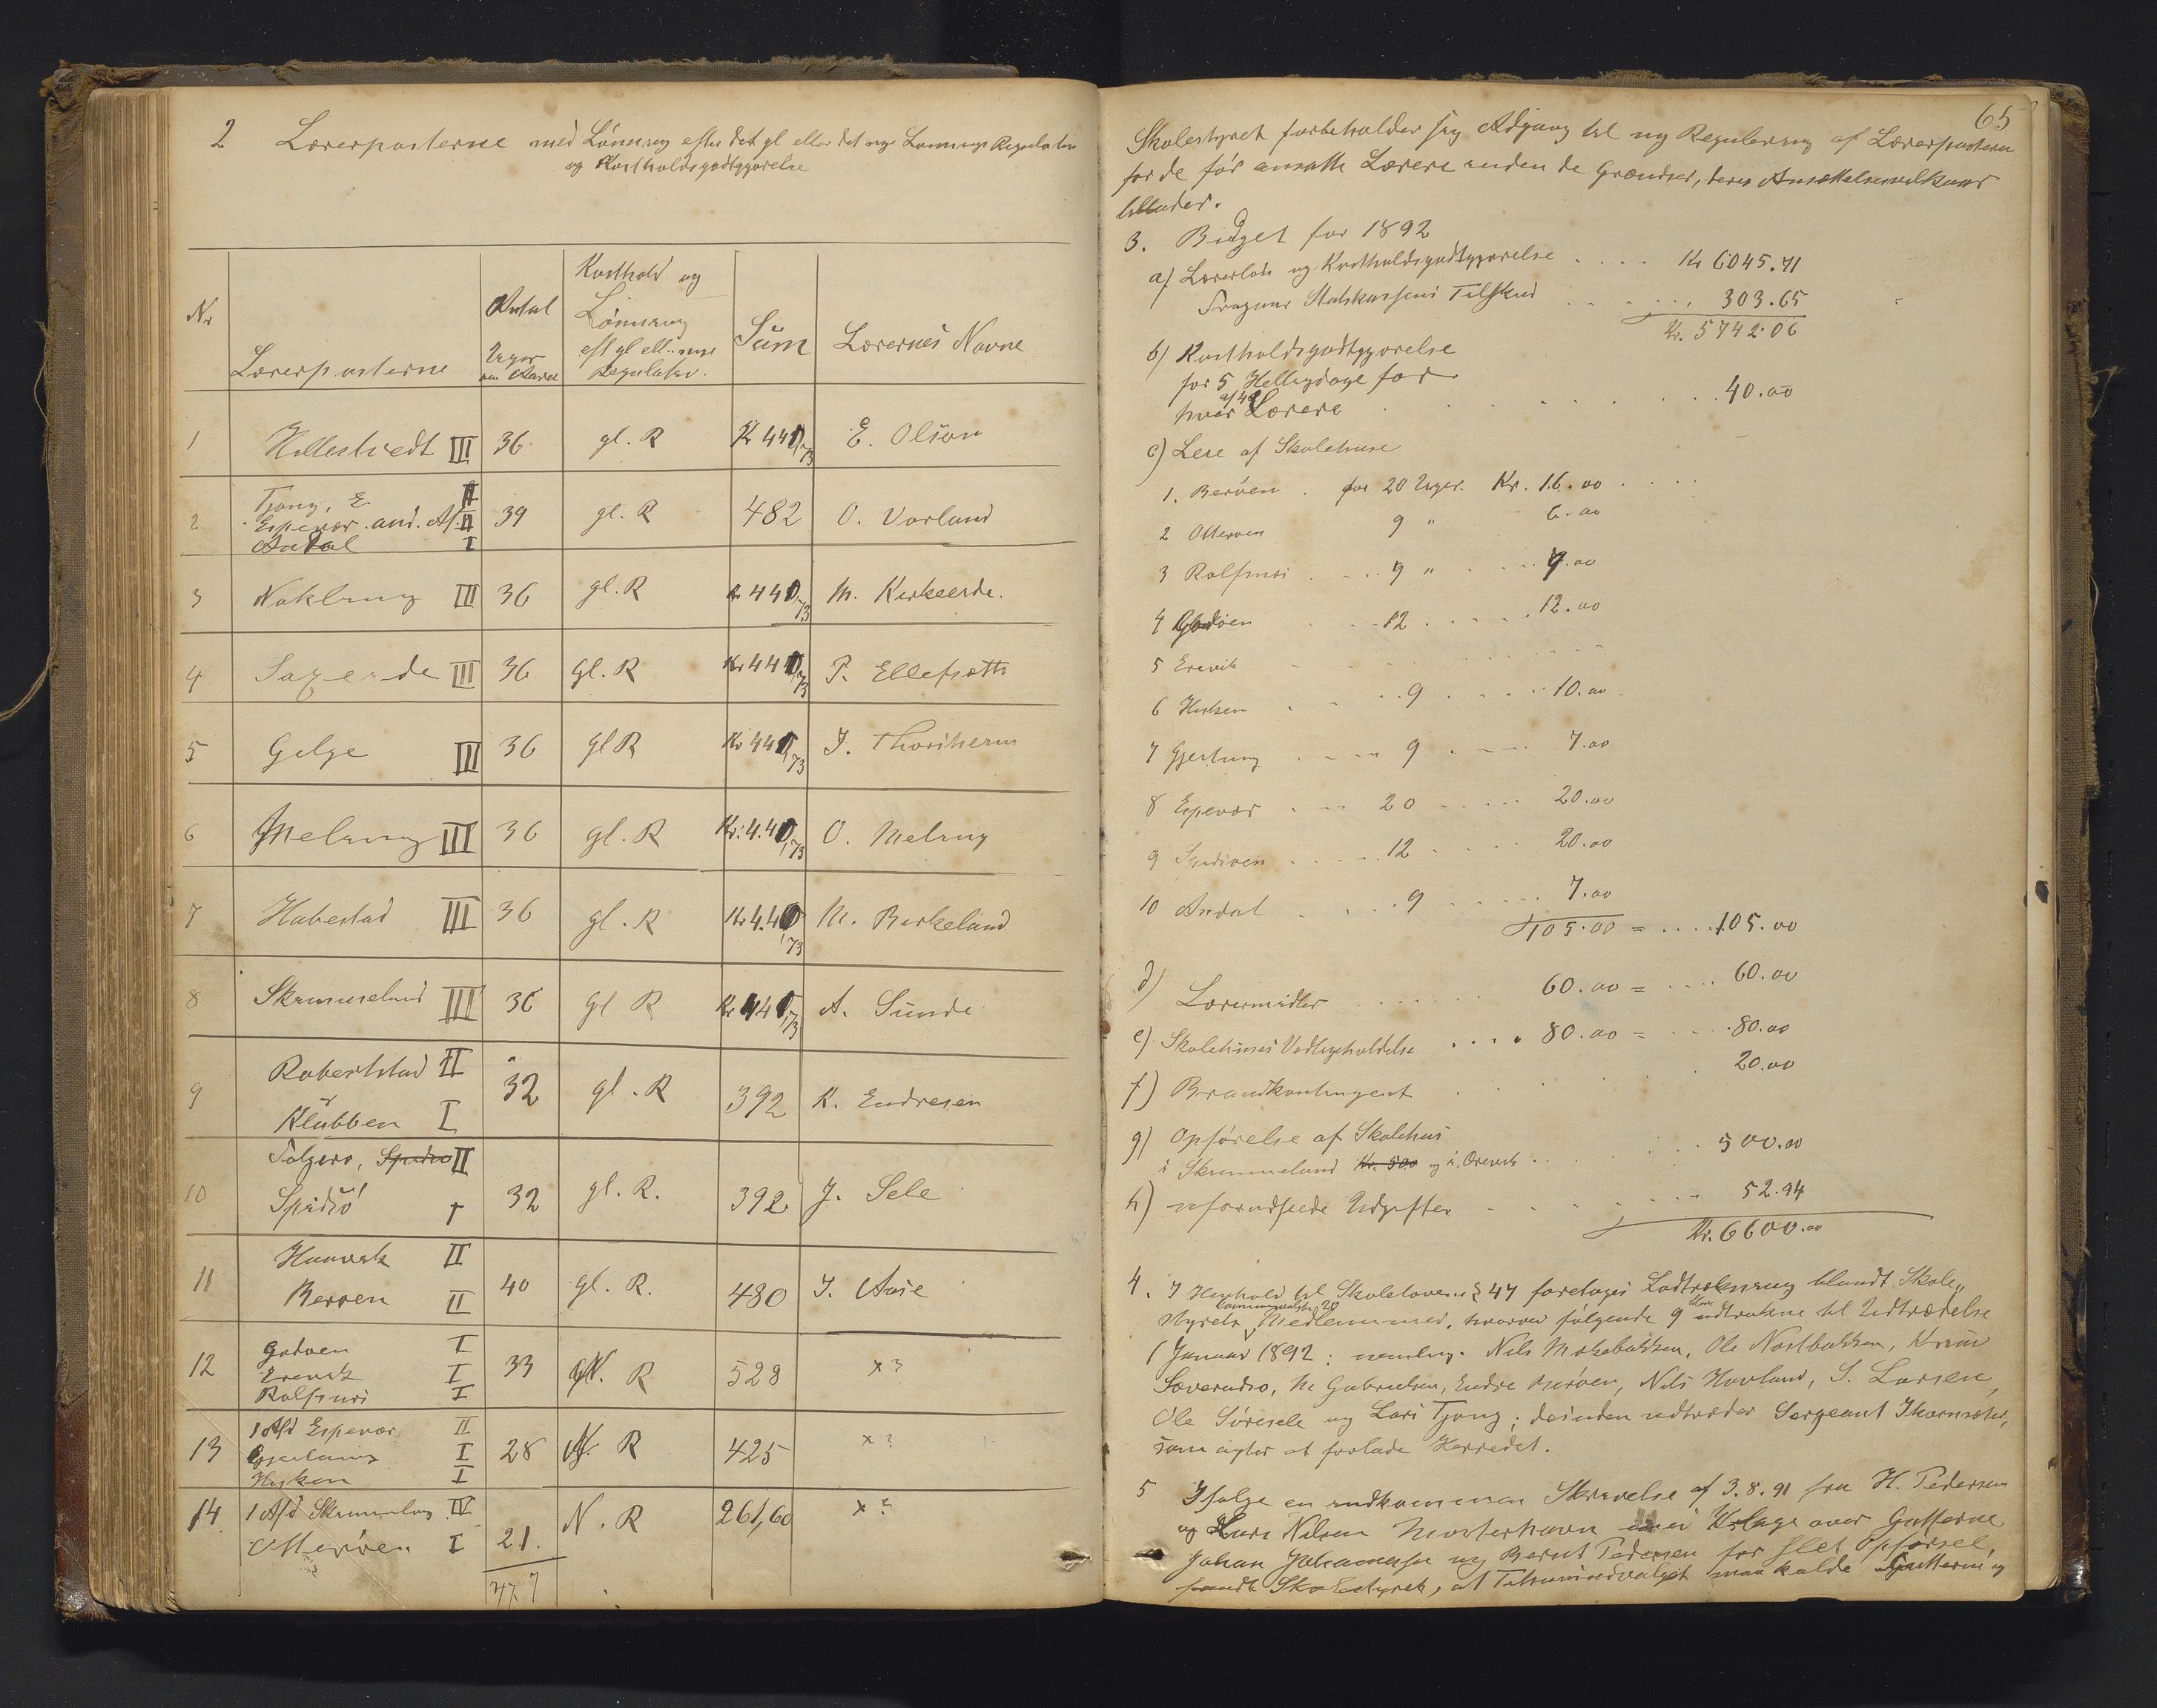 2 Lærerposterne med Lønning efter det gl eller det nye Lønnings Regulativ
og Kostholdsgodtgjørelse
Nr
Lærerposterne
Antal Uger om Aaret
Kosthold og Lønning eft gl ell. nye Regulativ.
Sum
Lærernes Navne
1 Hillestvedt III 36 gl. R K 440,73 E. Olson
2 Tjong, E II
Espevær. and. Af. II 39 gl. R 482 O. Vorland
Andal I
3 Nokling III 36 gl. R K 440,73 M. Kirkeeide.
4 Saxeide III 36 gl. R Kr 440,73 P. Ellefsøtt
5 Gilje III 36 gl R Kr 440,73 J.
6 Meling III 36 gl. R Kr. 440,73 O. Meling
7 Habestad III 36 gl. R Kr 440,73 M. Birkeland
8 Skimmeland III 36 gl R Kr 440,73 A. Sunde
9 Robertstad II
32 gl. R 392 K. Endresen
Klubben I
10 II
Spidsø 32 gl. R. 392 J. Sele
11 Haavik II
Berøen II 40 gl. R. 480 J. Aase
12 Godøen I
Erevik I 33 N. R 528 x?
Rolfsnes I
13 1 Afd Espevær II
Gjerlning I 28 N. R 425 x?
Hisken I
14 1 Afd Skimmelnd IV N. R 261,60 x?
Otterøen I 21.
477
65
Skolestyret forbeholder sig Adgang til ny Regulering af Lærerposterne
for de før ansatte Lærere inden de Grændser, deres Ansættelsesvilkaar
tillader.
3. Budget for 1892
a) Lærerløn og Kostholdsgodtgjørelse .... Kr 6045.71
Fragaar Statskassens Tilskud ..... 303.65
Kr. 5742.06
b) Kostholdsgodtgjørelse
for 5 Helligdage for
hver af Lærere ..... 40.00
c) Leie af Skolehuse
1. Berøen . for 20 Uger. Kr. 16.00 ....
2 Otterøen 9 " 6.00
3 Rolfsnes .... 9 " .... 7.00
4 Godøen .... 12 ..... 12.00
5 Erevik
6 Hisken .... 9 .... 10.00
7 Gjerlning .... 9 .... 7.00
8 Espevær ... 20 ..... 20.00
9 Spidsøen ..... 12 .... 20.00
10 Andal .... 9 ..... 7.00
105.00 = .... 105.00
d) Læremidler ...... 60.00 = .... 60.00
e) Skolehuses Vedligeholdelse .... 80.00 = .... 80.00
f) Brandkontingent 20.00
g) Opførelse af Skolehus
i Skimmeland Kr. 500 og i Erevik .. 500.00
h) uforudseede Udgifter .... 52.94
Kr. 6600.00
4. I Henhold til Skolelovens § 47 foretoges Lodtrækning blandt Skole„
styrets kommunevalgte 20 Medlemmer, hvorved følgende 9 blev udtrukne til Udtrædelse
1 Januar 1892: nemlig. Nils Mokebakken, Ole Nostbakken, Knut
M Gabrielsen, Endre Berøen, Nils Hovland, S. Larsen,
Ole Siresele og Lars Tjong; desuden udtræder Sergeant
som agter at forlade Herredet.
5 Ifølge en indkommen Skrivelse af 3.8.91 fra H. Pedersen
og Lars Nilsen Mosterhavn med Klage over Gutterne
Johan Johannessen og Bernt Pedersen for slet Opførsel,
fandt Skolestyret, at Tilsynsudvalget maa kalde Gutterne og